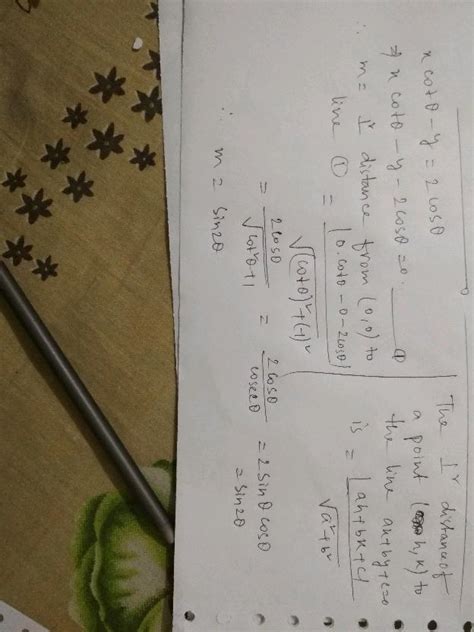 x cotθ - y = 2 cosθ
⇒ x cotθ - y - 2cosθ = 0 ——— ①
m = ⊥r distance from (0,0) to
line ① = |0.cotθ - 0 - 2cosθ| / √(cotθ)² + (-1)²
= 2cosθ / √cot²θ+1 = 2cosθ / cosecθ = 2 sinθ cosθ
= sin2θ
∴ m = sin2θ
The ⊥r distance of
a point (h, k) to
the line ax+by+c=0
is = |ah+bk+c| / √a²+b²